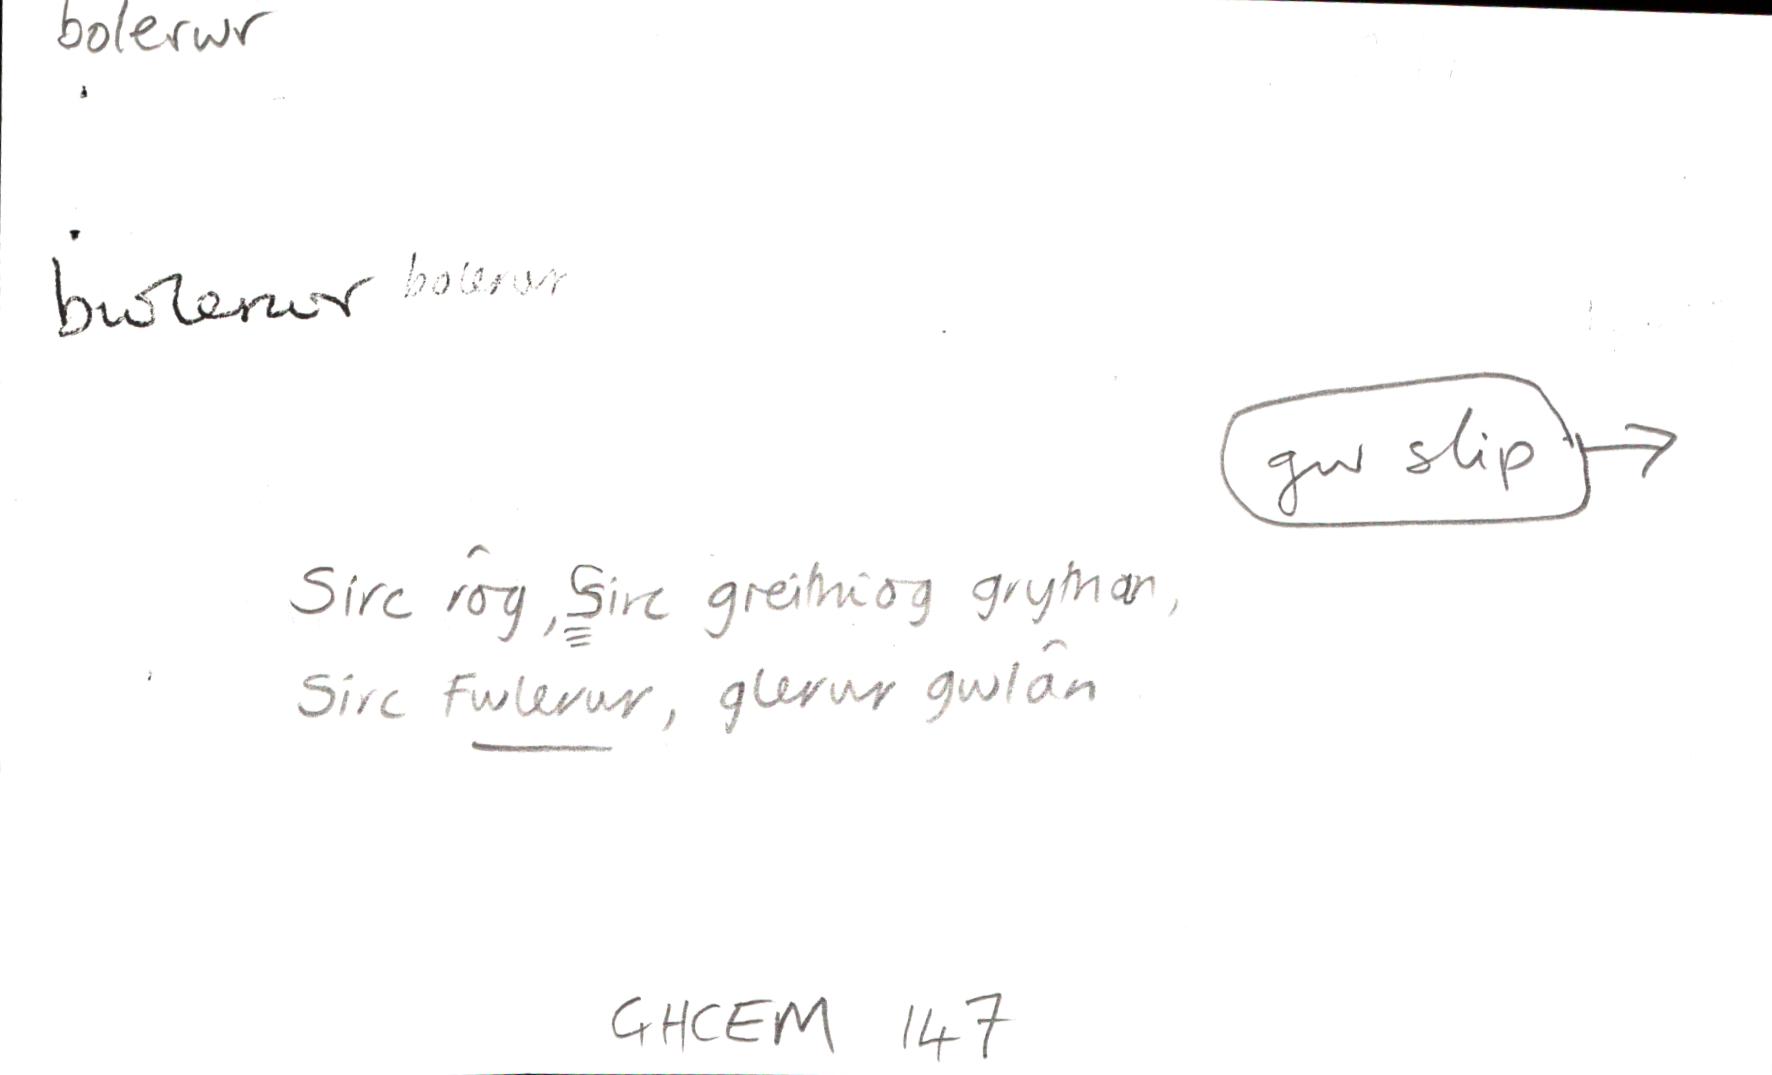 bolerwr
bwlerwr bolerwr
gw slip →
Sirc rôg, Sirc greithiog grythan,
Sirc Fwlerwr, glerwr gwlân
GHCEM 147